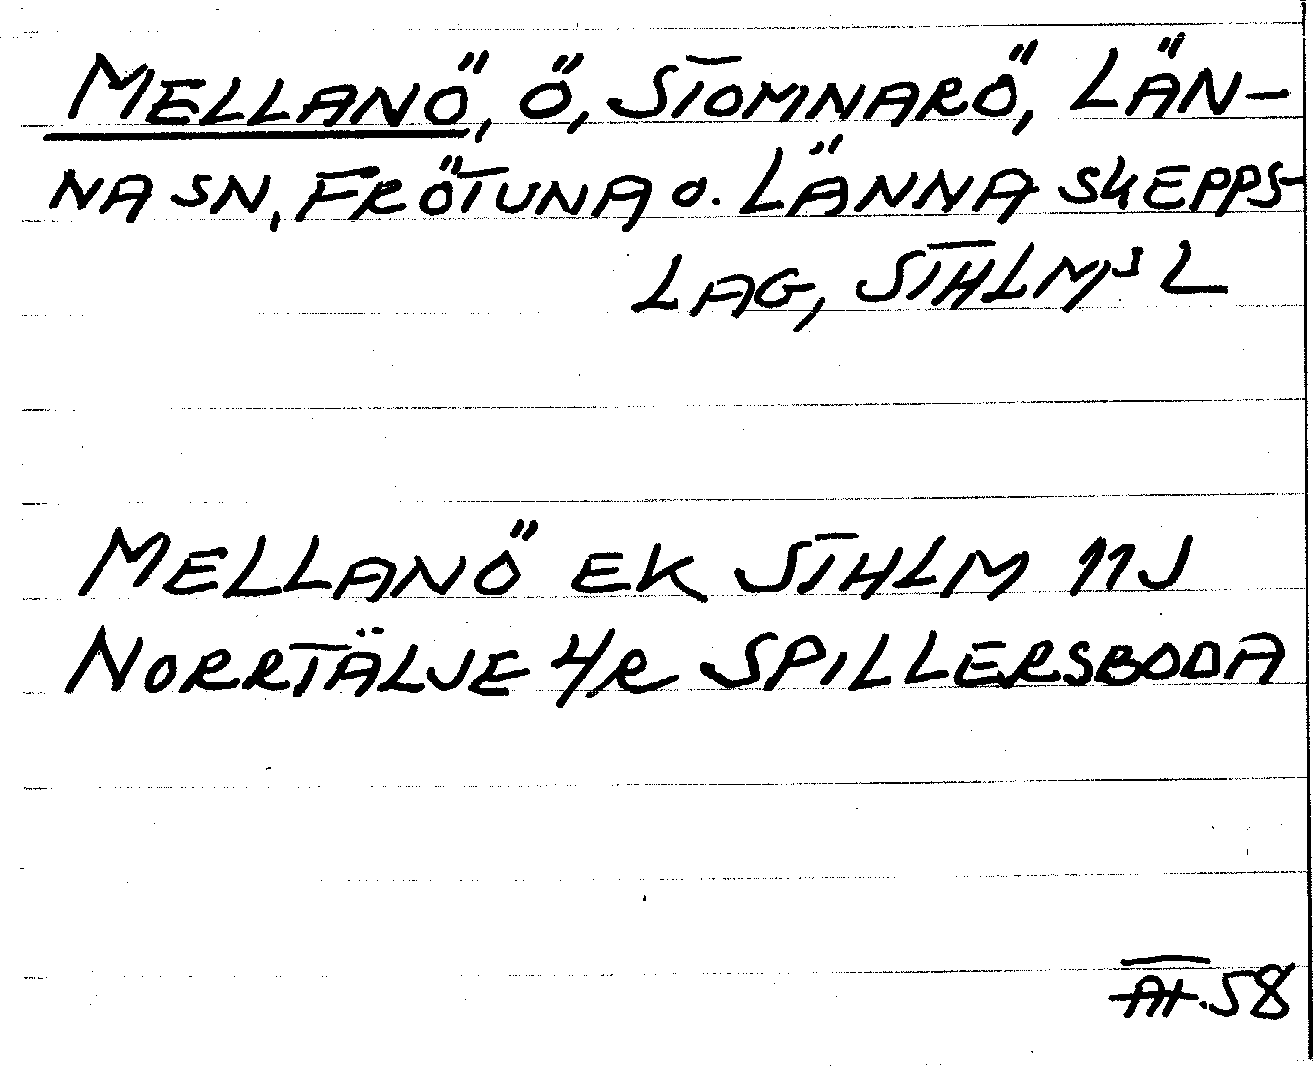 MELLANÖ, Ö, STOMNARÖ, LÄN-
NA SN, FRÖTUNA o. LÄNNA SKEPPS-
LAG, STHLMS L
MELLANÖ EK STHLM 11J
NORRTÄLJE 4/R SPILLERSBODA
58